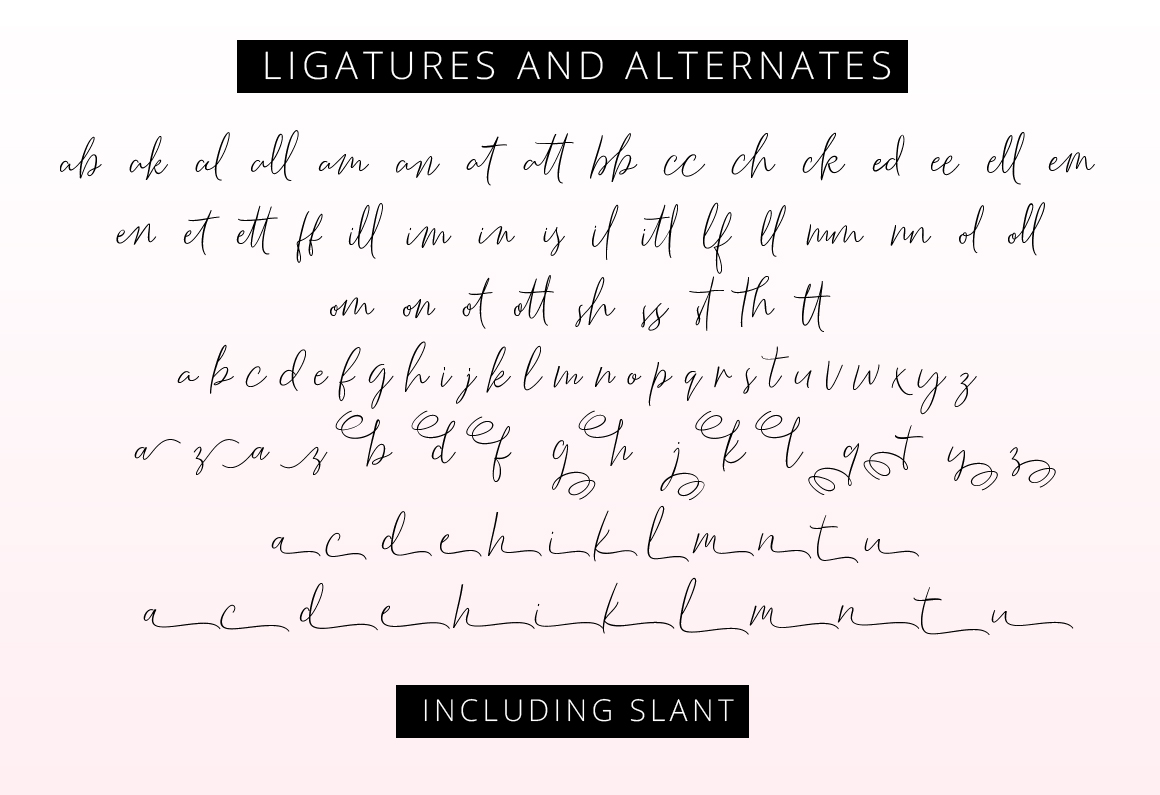 LIGATURES AND ALTERNATES
ab ak al all am an at att bb cc ch ck ed ee ell em
en et ett ff ill im in is il itl lf ll mm nn ol oll
om on ot ott sh ss st th tt
a b c d e f g h i j k l m n o p q r s t u v w x y z
a z a z b d f g h j k l q t y z
a c d e h i k l m n t u
a c d e h i k l m n t u
INCLUDING SLANT